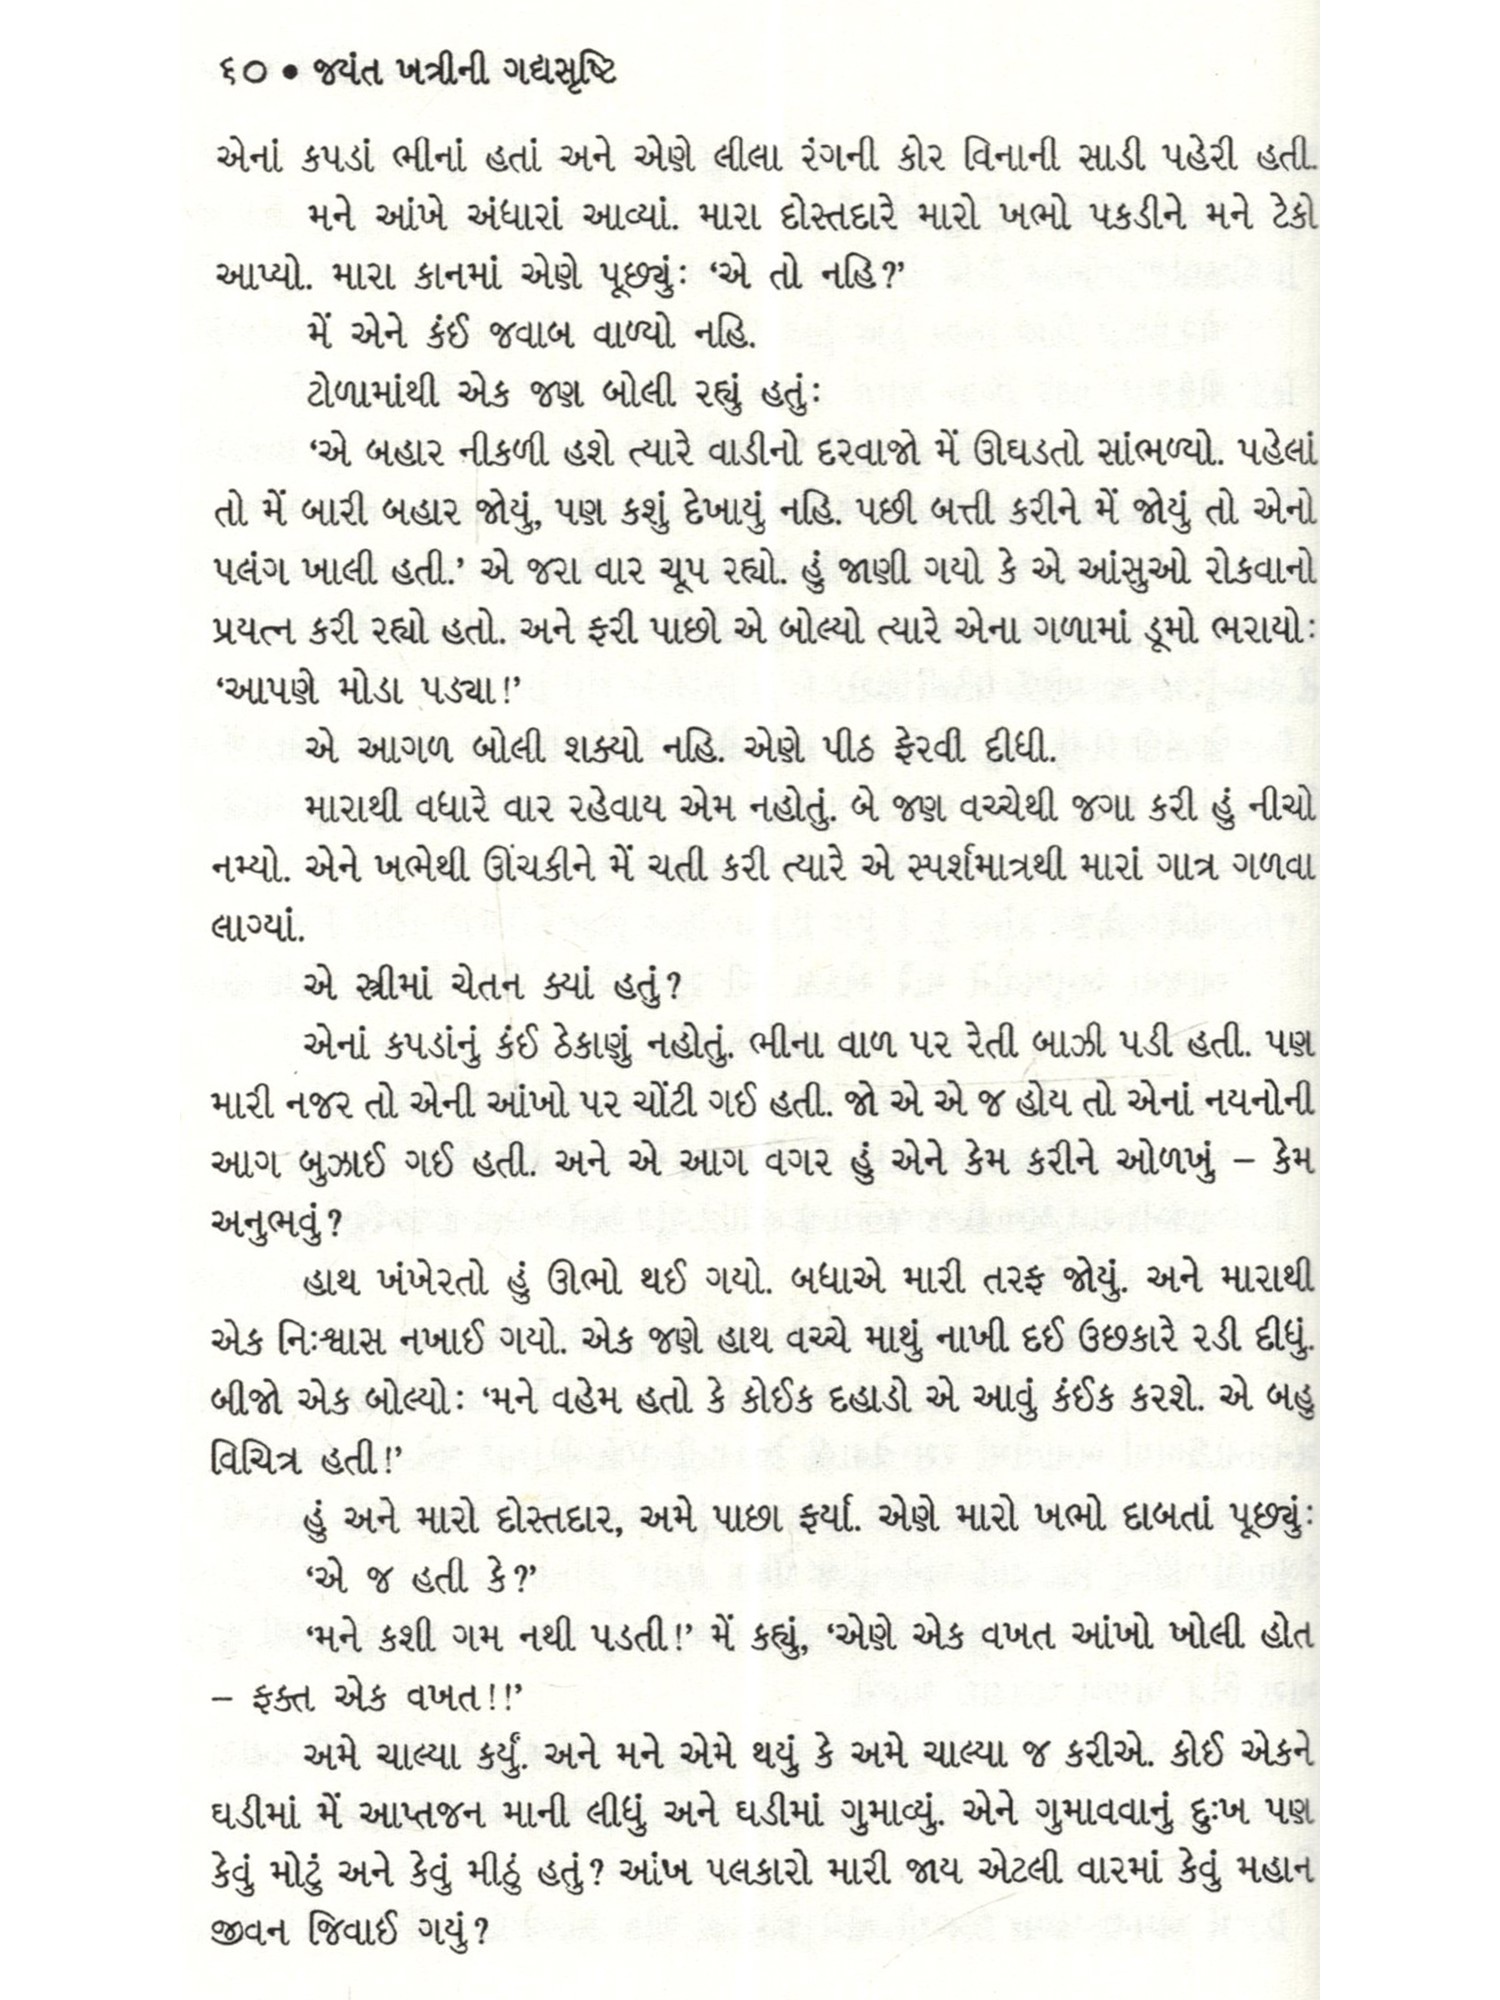 ૬૦ • જયંત ખત્રીની ગદ્યસૃષ્ટિ
એનાં કપડાં ભીનાં હતાં અને એણે લીલા રંગની કોર વિનાની સાડી પહેરી હતી.
મને આંખે અંધારાં આવ્યાં. મારા દોસ્તદારે મારો ખભો પકડીને મને ટેકો
આપ્યો. મારા કાનમાં એણે પૂછ્યુંઃ ‘એ તો નહિ?’
મેં એને કંઈ જવાબ વાળ્યો નહિ.
ટોળામાંથી એક જણ બોલી રહ્યું હતુંઃ
‘એ બહાર નીકળી હશે ત્યારે વાડીનો દરવાજો મેં ઊઘડતો સાંભળ્યો. પહેલાં
તો મેં બારી બહાર જોયું, પણ કશું દેખાયું નહિ. પછી બત્તી કરીને મેં જોયું તો એનો
પલંગ ખાલી હતી.’ એ જરા વાર ચૂપ રહ્યો. હું જાણી ગયો કે એ આંસુઓ રોકવાનો
પ્રયત્ન કરી રહ્યો હતો. અને ફરી પાછો એ બોલ્યો ત્યારે એના ગળામાં ડૂમો ભરાયોઃ
‘આપણે મોડા પડ્યા!’
એ આગળ બોલી શક્યો નહિ. એણે પીઠ ફેરવી દીધી.
મારાથી વધારે વાર રહેવાય એમ નહોતું. બે જણ વચ્ચેથી જગા કરી હું નીચો
નમ્યો. એને ખભેથી ઊંચકીને મેં ચતી કરી ત્યારે એ સ્પર્શમાત્રથી મારાં ગાત્ર ગળવા
લાગ્યાં.
એ સ્ત્રીમાં ચેતન ક્યાં હતું?
એનાં કપડાંનું કંઈ ઠેકાણું નહોતું. ભીના વાળ પર રેતી બાઝી પડી હતી. પણ
મારી નજર તો એની આંખો પર ચોંટી ગઈ હતી. જો એ એ જ હોય તો એનાં નયનોની
આગ બુઝાઈ ગઈ હતી. અને એ આગ વગર હું એને કેમ કરીને ઓળખું – કેમ
અનુભવું?
હાથ ખંખેરતો હું ઊભો થઈ ગયો. બધાએ મારી તરફ જોયું. અને મારાથી
એક નિઃશ્વાસ નખાઈ ગયો. એક જણે હાથ વચ્ચે માથું નાખી દઈ ઉછકારે રડી દીધું.
બીજો એક બોલ્યોઃ ‘મને વહેમ હતો કે કોઈક દહાડો એ આવું કંઈક કરશે. એ બહુ
વિચિત્ર હતી!’
હું અને મારો દોસ્તદાર, અમે પાછા ફર્યા. એણે મારો ખભો દાબતાં પૂછ્યુંઃ
‘એ જ હતી કે?’
‘મને કશી ગમ નથી પડતી!’ મેં કહ્યું, ‘એણે એક વખત આંખો ખોલી હોત
– ફક્ત એક વખત!!’
અમે ચાલ્યા કર્યું. અને મને એમે થયું કે અમે ચાલ્યા જ કરીએ. કોઈ એકને
ઘડીમાં મેં આપ્તજન માની લીધું અને ઘડીમાં ગુમાવ્યું. એને ગુમાવવાનું દુઃખ પણ
કેવું મોટું અને કેવું મીઠું હતું? આંખ પલકારો મારી જાય એટલી વારમાં કેવું મહાન
જીવન જિવાઈ ગયું?